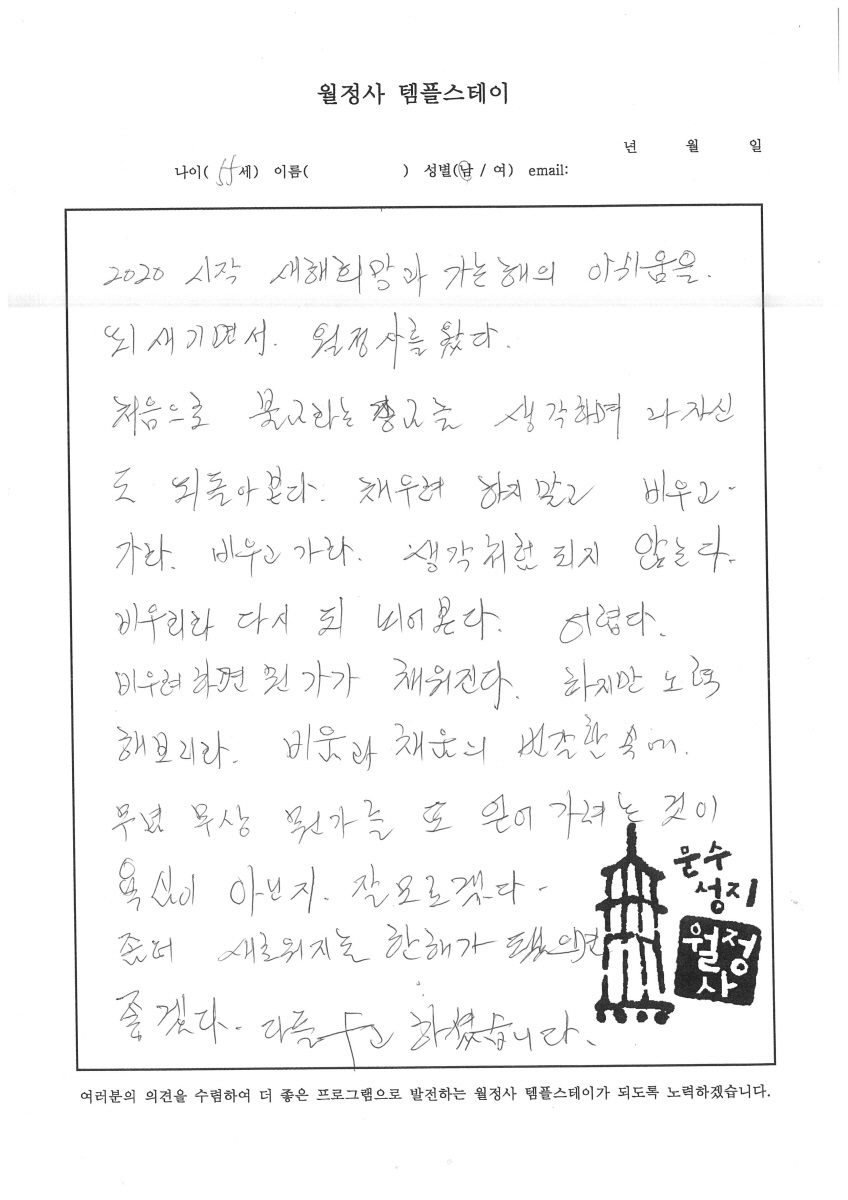 월정사 템플스테이
년 월 일
나이( 55세) 이름( ) 성별(남 / 여) email:
2020 시작 새해희망과 가는해의 아쉬움을.
뇌새기면서. 월정사를 왔다.
처음으로 불교라는 종교를 생각하며 나자신
도 뇌돌아본다. 채우려 하지말고 비우고-
가라. 비우고 가라. 생각처럼 되지 않는다.
비우리라 다시 되 뇌어본다. 어렵다.
비우려하면 뭔가가 채워진다. 하지만 노력
해보리라. 비움과 채움의 번잡함 속에.
무념 무상 뭔가를 또 얻어가려는 것이
욕심이 아닌지. 잘모르겠다-
좀더 새로워지는 한해가
좋겠다- 다들 수고 하셨습니다.
문수
성지
월정
사
여러분의 의견을 수렴하여 더 좋은 프로그램으로 발전하는 월정사 템플스테이가 되도록 노력하겠습니다.